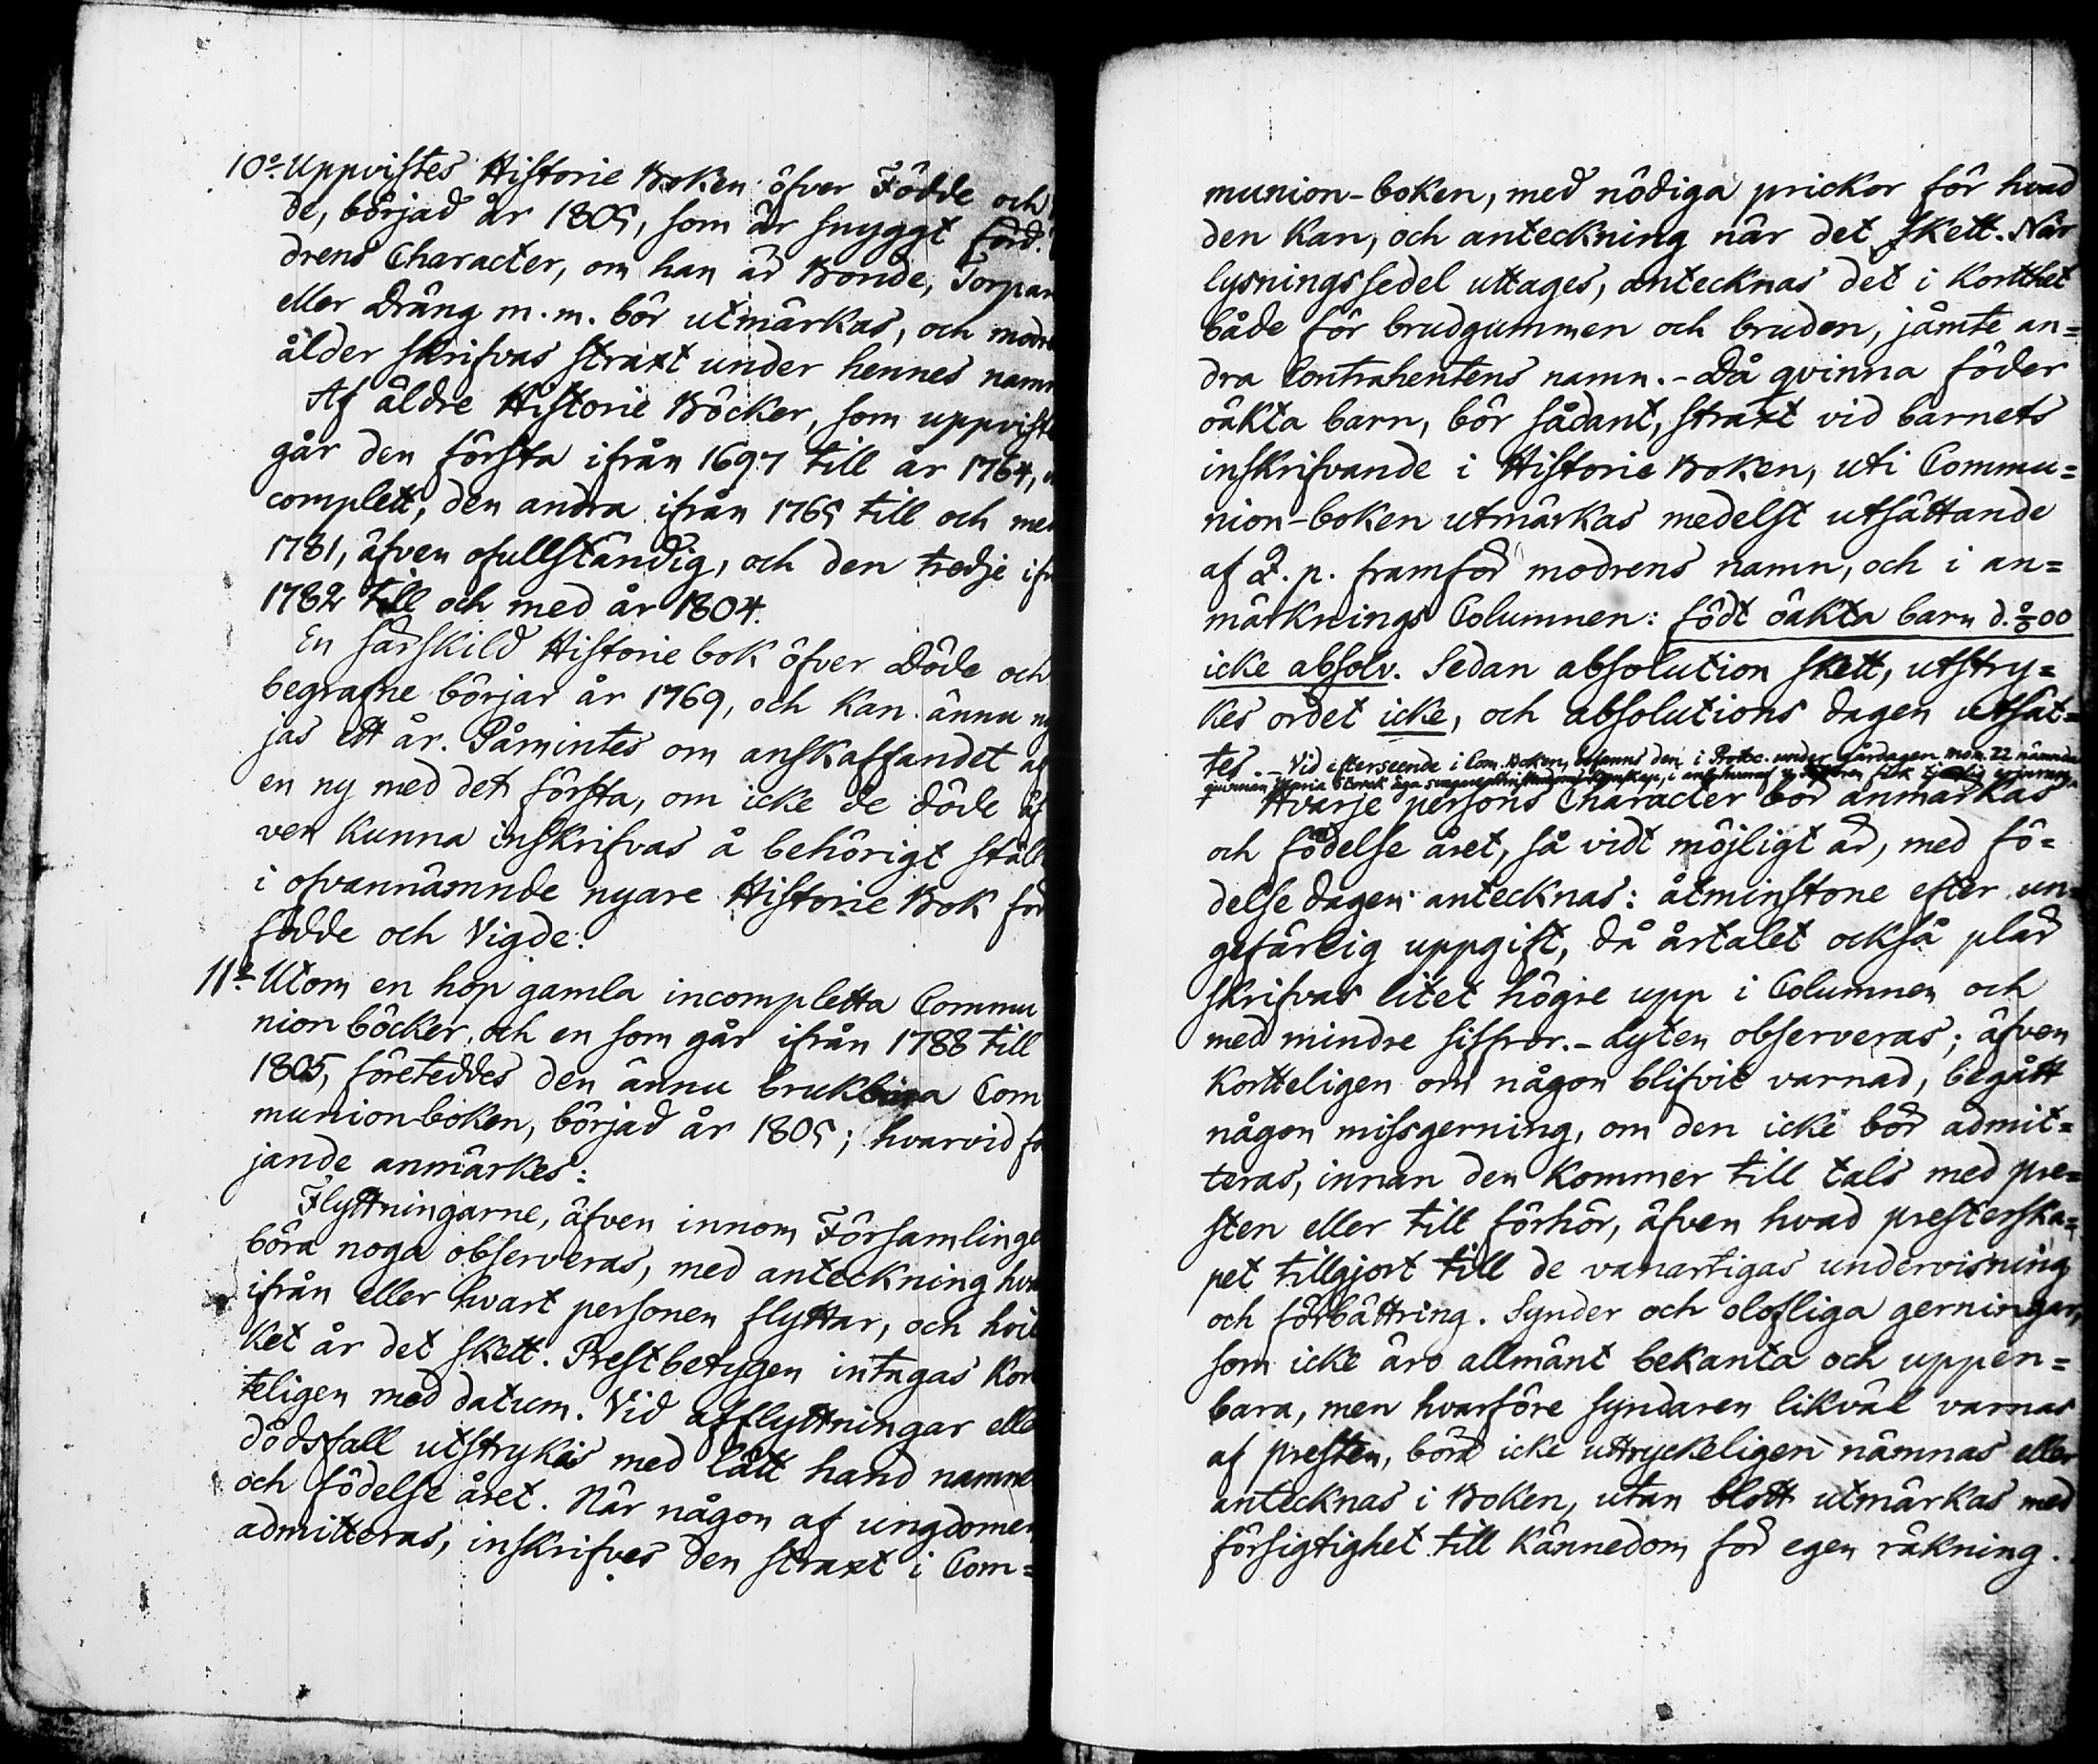 10o Uppvistes Historie Boken öfver Födde och
de, börjad år 1805, som är snyggt förd.
drens Character, om han är Bonde, Torpar
eller Dräng m.m. bör utmärkas, och modre
ålder skrifvas straxt under hennes namn
Af äldre Historie Böcker, som uppviste
går den första ifrån 1697 till år 1764,
complett, den andra ifrån 1765 till och med
1781, äfven ofullständig, och den tredje ifr
1782 till och med år 1804.
En särskild Historie bok öfver Döde och
begrafne börjar år 1769, och kan ännu ny
jas ett år. Påmintes om anskaffandet af
en ny med det första, om icke de döde äf
ven kunna inskrifvas å behörigt ställe
i ofvannämnde nyare Historie Bok för
födde och Vigde.
11o Utom en hop gamla incompletta Commu
nion böcker, och en som går ifrån 1788 till
1805, företeddes den ännu brukbara Com
munion-boken, börjad år 1805; hvarvid fö
jande anmärkes:
Flyttningarne, äfven innom Församlinge
böra noga observeras, med anteckning hva
ifrån eller hvart personen flyttar, och hvil
ket år det skett. Prestbetygen intagas kor
teligen med datum. Vid afflyttningar elle
dödsfall utstrykes med lätt hand namne
och födelse året. När någon af ungdomen
admitteras, inskrifves den straxt i Com=
munion-boken, med nödiga prickor för hvad
den kan, och anteckning när det skett. När
lysningssedel uttages, antecknas det i korthet
både för brudgummen och bruden, jämte an=
dra Contrahentens namn. - Då qvinna föder
oäkta barn, bör sådant, straxt vid barnets
inskrifvande i Historie Boken, uti Commu=
nion-boken utmärkas medelst utsättande
af Q. p. framför modrens namn, och i an=
märknings Columnen: födt oäkta barn d. 0/0 00
icke absolv. Sedan absolution skett, utstry=
kes ordet icke, och absolutions dagen utsät=
tes. - Vid efterseende i Com. Boken, befanns den i Protoc. under gårdagen mom. 22 nämnda
qvinnan Maria
Hvarje persons Character bör anmärkas
och födelse året, så vidt möjligt är, med fö=
delse dagen antecknas: åtminstone efter un=
gefärlig uppgift, då årtalet också plär
skrifvas litet högre upp i Columnen och
med mindre siffror. - Lyten observeras; äfven
kortteligen om någon blifvit varnad, begått
någon missgerning, om den icke bör admit=
teras, innan den kommer till tals med pre=
sten eller till förhör, äfven hvad presterska=
pet tillgjort till de vanartigas undervisning
och förbättring. Synder och olofliga gerningar,
som icke äro allmänt bekanta och uppen=
bara, men hvarföre syndaren likväl varnas
af presten, böra icke uttryckeligen nämnas eller
antecknas i Boken, utan blott utmärkas med
försigtighet till kännedom för egen räkning.